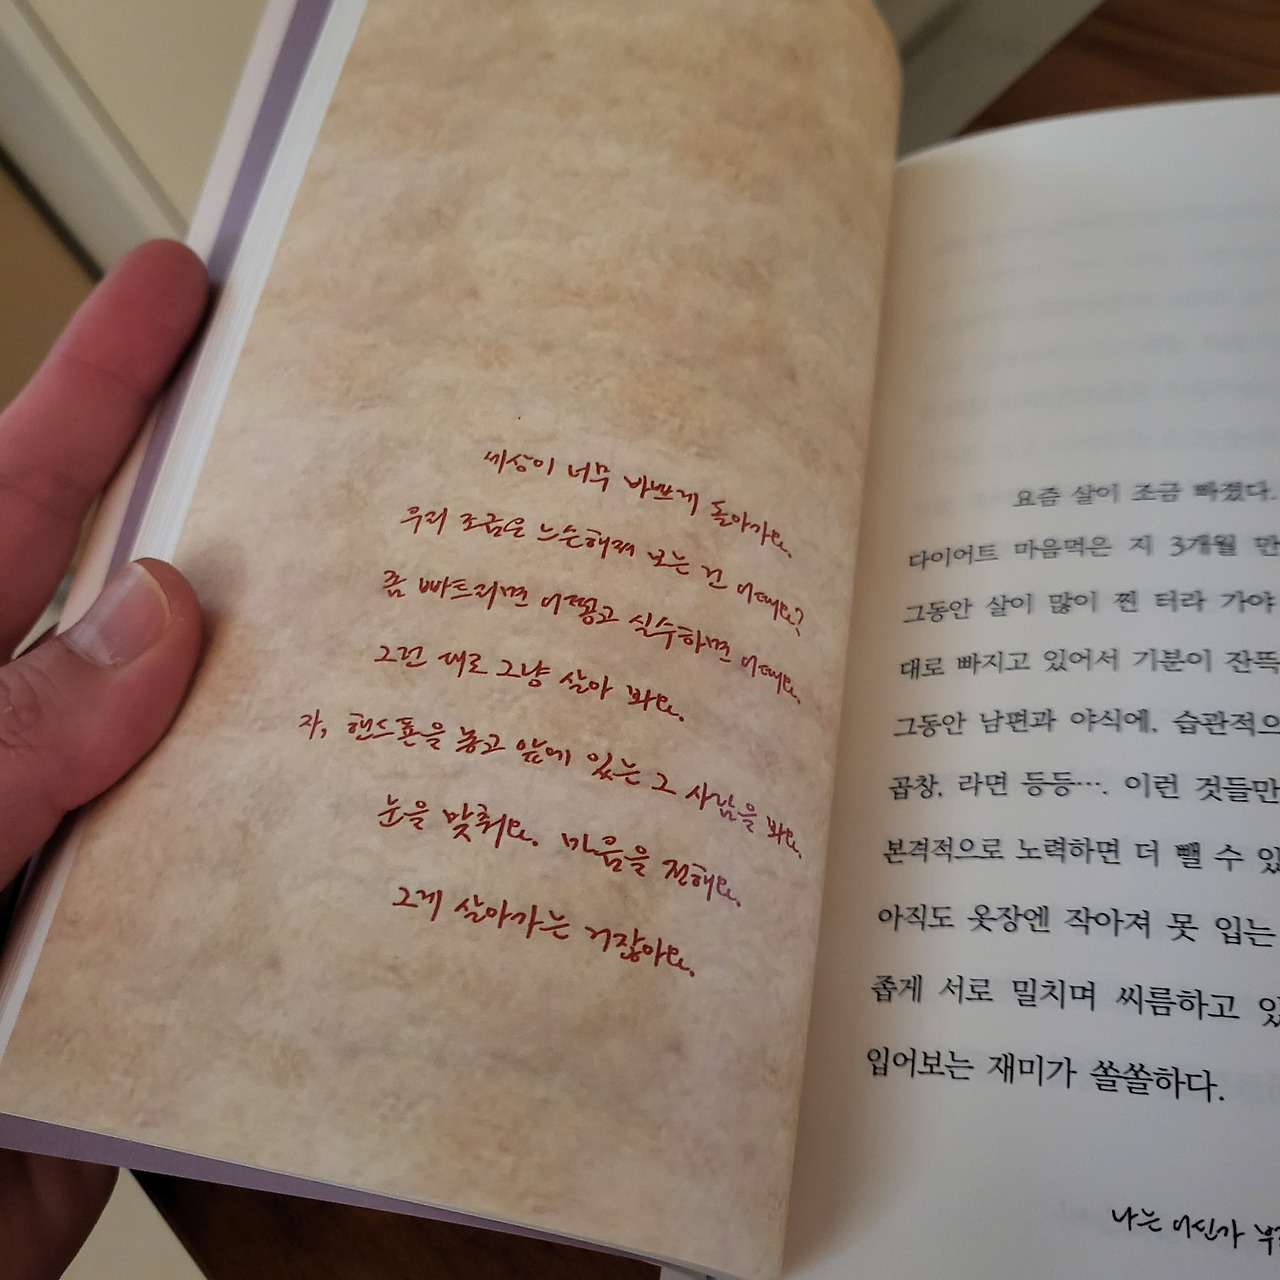 세상이 너무 바쁘게 돌아가요.
우리 조금은 느슨해져 보는 건 어때요?
좀 빠뜨리면 어떻고 실수하면 어때요.
그런 대로 그냥 살아 봐요.
자, 핸드폰을 놓고 앞에 있는 그 사람을 봐요.
눈을 맞춰요. 마음을 전해요.
그게 살아가는 거잖아요.
요즘 살이 조금 빠졌다.
다이어트 마음먹은 지 3개월 만
그동안 살이 많이 찐 터라 가야
대로 빠지고 있어서 기분이 잔뜩
그동안 남편과 야식에, 습관적으
곱창, 라면 등등…. 이런 것들만
본격적으로 노력하면 더 뺄 수 있
아직도 옷장엔 작아져 못 입는
좁게 서로 밀치며 씨름하고 있
입어보는 재미가 쏠쏠하다.
나는 어딘가